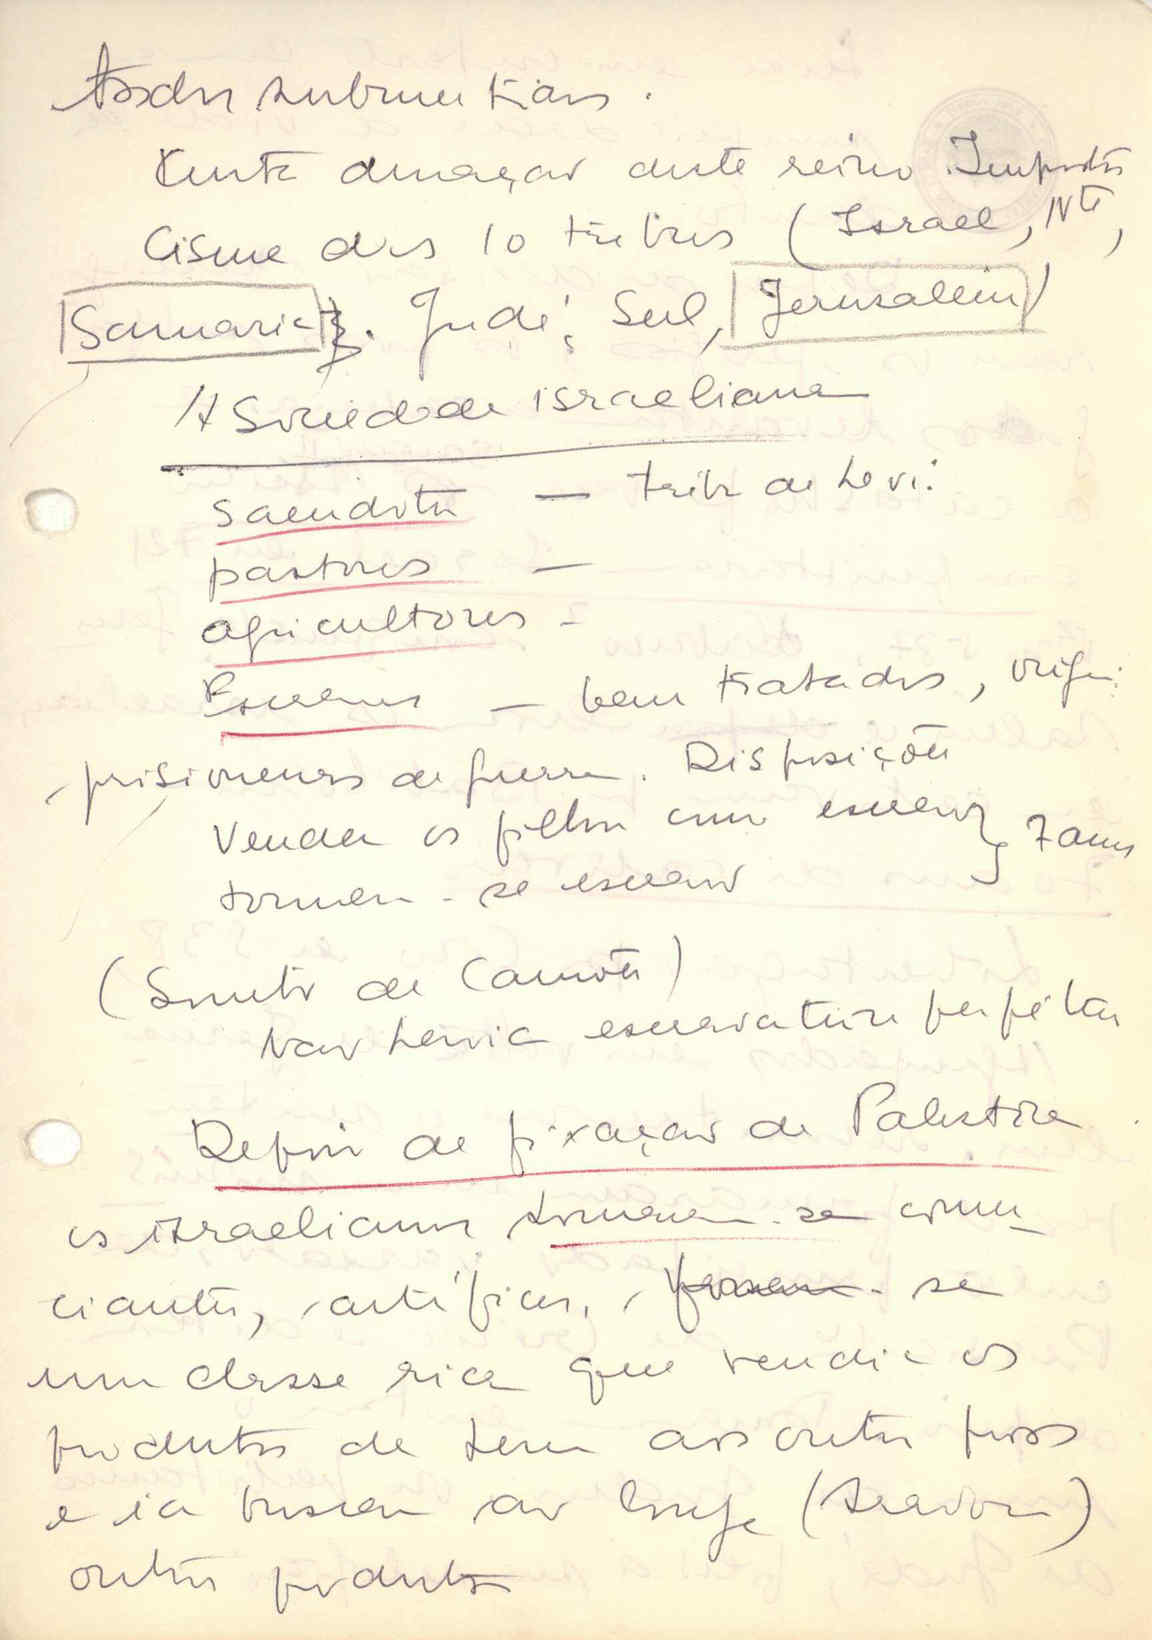 Todos submetiam.
Curta duração deste reino. Impostos
Cisma das 10 tribus (Israel, Nte,
Samaria). Judá, Sul, Jerusalem)
A Sociedade israeliana
sacerdotes — tribu de Levi.
pastores —
agricultores -
Escravos — bem tratados, origem:
prisioneiros de guerra. Disposições
Vender os filhos como escravos } 7 anos
tornar-se escravo
(Soneto de Camões)
Não havia escravatura perpétua
Depois de fixação da Palestina
os israelianos tornaram-se comer
ciantes, artífices, se
uma classe rica que vendia os
produtos da terra aos outros povos
e ia buscar ao longe
outros produtos